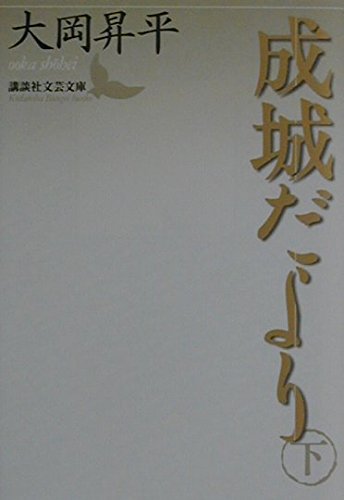 成城だより
下
大岡昇平
ooka shōhei
講談社文芸文庫
Kodansha Bungei bunko